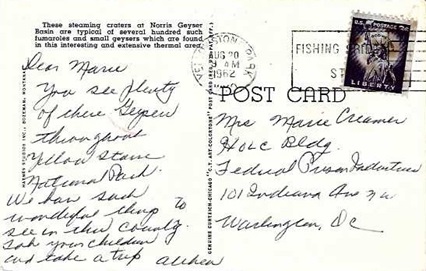 These steaming craters at Norris Geyser
Basin are typical of several hundred such
fumaroles and small geysers which are found
in this interesting and extensive thermal area.
Dear Marie
You see plenty
of these Geysers
throughout
Yellow Stone
National Park.
We have such
wonderful things to
see in this County.
Sok your Children
and take a trip
HAYNES STUDIOS INC., BOZEMAN, MONTANA
YELLOWSTONE PARK
AUG 20
9 AM
1962
FISHING BRIDGE
U.S. POSTAGE
LIBERTY
POST CARD
Mrs Marie Creamer
HOLC Bldg.
Federal Prison Industries
101 Indiana Ave NW
Washington, DC